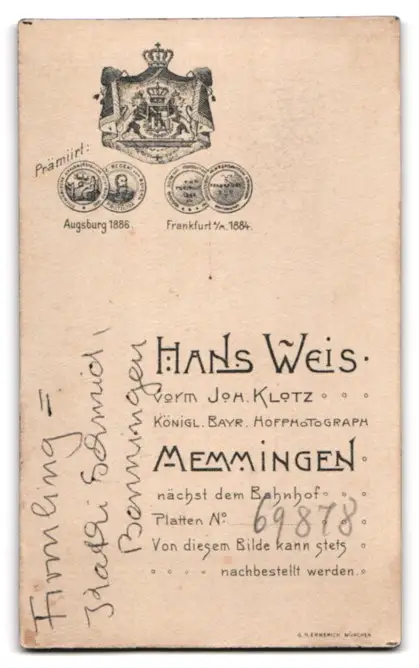 Prämiirt:
Augsburg 1886. Frankfurt a/M. 1884.
Hans Weis.
vorm Joh. Klotz
Königl. Bayr. Hofphotograph
Memmingen
nächst dem Bahnhof
Platten No. 69878
Von diesem Bilde kann stets
nachbestellt werden.
Firmling =
Kathi Schmid,
Benningen